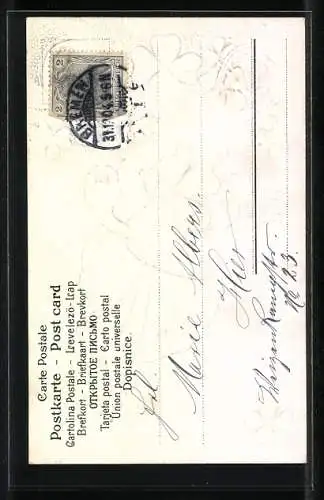 Carte Postale
Postkarte - Post card
Cartolina Postale - Levelező-Lap
Brefkort - Briefkaart - Brevkort
ОТКРЫТОЕ ПИСЬМО
Tarjeta postal - Carto postal
Union postale universelle
Dopisnice.
2 2
BREMEN
Frl. Marie Albers.
Hier
No 23.